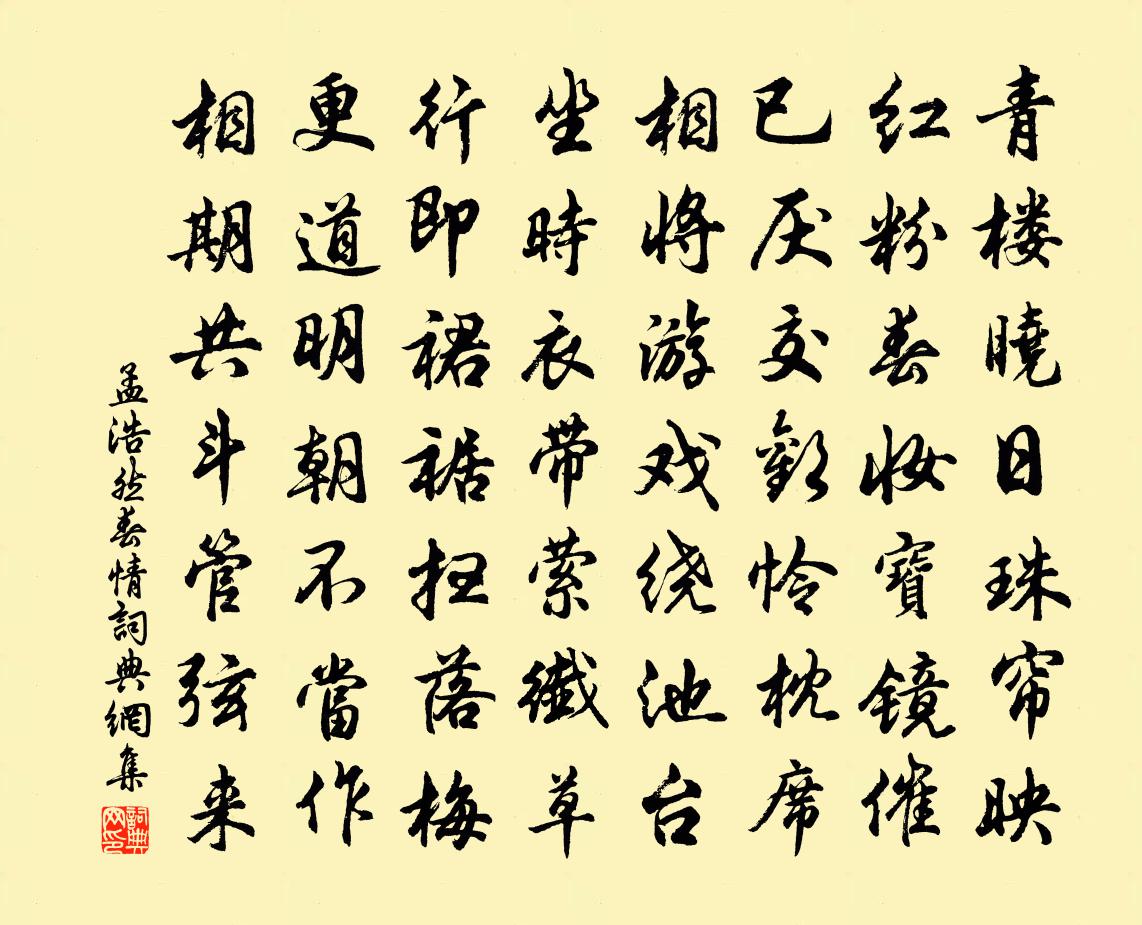 青楼曉日珠帘映
红粉春妆寶镜催
已厌交歡怜枕席
相将游戏绕池台
坐時衣带萦纖草
行即裙裾扫落梅
更道明朝不當作
相期共斗管弦来
孟浩然春情詞典網集
詞典网印